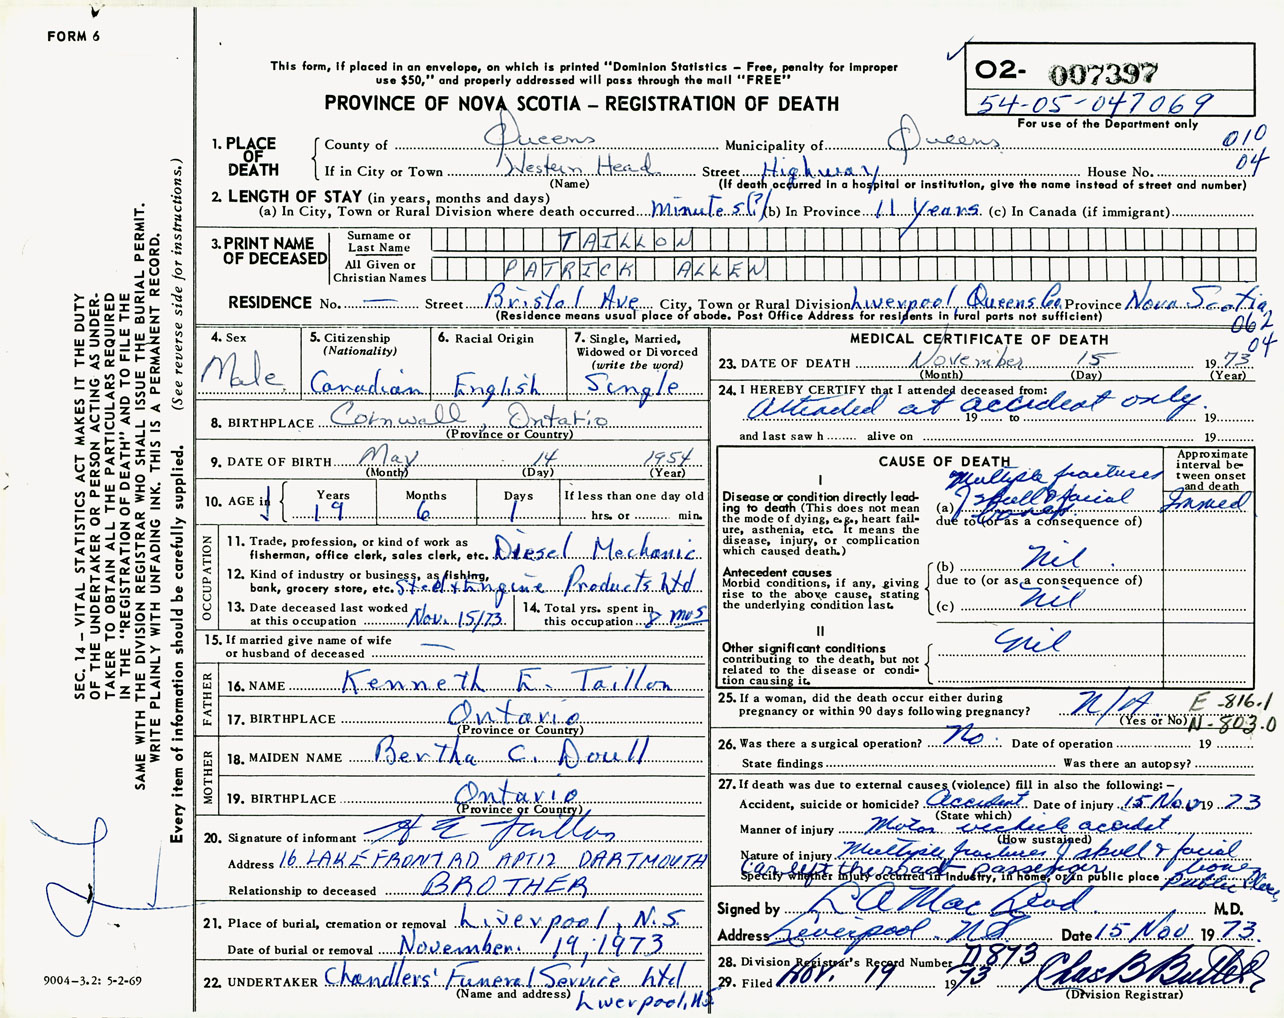 FORM 6
This form, if placed in an envelope, on which is printed "Dominion Statistics – Free, penalty for improper
use $50," and properly addressed will pass through the mail "FREE"
PROVINCE OF NOVA SCOTIA – REGISTRATION OF DEATH
02- 007397
54-05-047069
For use of the Department only
010
04
1. PLACE OF DEATH
County of Queens Municipality of Queens
If in City or Town Western Head Street Highway House No.
(Name) (If death occurred in a hospital or institution, give the name instead of street and number)
2. LENGTH OF STAY (in years, months and days)
(a) In City, Town or Rural Division where death occurred Minutes(?) (b) In Province 11 Years (c) In Canada (if immigrant)
3. PRINT NAME OF DECEASED
Surname or Last Name TAILLON
All Given or Christian Names PATRICK ALLEN
RESIDENCE No. — Street Bristol Ave City, Town or Rural Division Liverpool, Queens Co Province Nova Scotia
(Residence means usual place of abode. Post Office Address for residents in rural parts not sufficient)
062
04
4. Sex
Male
5. Citizenship
(Nationality)
Canadian
6. Racial Origin
English
7. Single, Married,
Widowed or Divorced
(write the word)
Single
8. BIRTHPLACE Cornwall, Ontario
(Province or Country)
9. DATE OF BIRTH May 14 1954
(Month) (Day) (Year)
10. AGE in
Years Months Days If less than one day old
19 6 1 hrs. or min.
OCCUPATION
11. Trade, profession, or kind of work as
fisherman, office clerk, sales clerk, etc. Diesel Mechanic
12. Kind of industry or business, as fishing,
bank, grocery store, etc. Steel & Engine Products Ltd
13. Date deceased last worked
at this occupation Nov. 15/73
14. Total yrs. spent in
this occupation 8 mos
15. If married give name of wife
or husband of deceased —
FATHER
16. NAME Kenneth E. Taillon
17. BIRTHPLACE Ontario
(Province or Country)
MOTHER
18. MAIDEN NAME Bertha C. Doull
19. BIRTHPLACE Ontario
(Province or Country)
20. Signature of informant Taillon
Address 16 LAKEFRONT RD APT 12 DARTMOUTH
Relationship to deceased BROTHER
21. Place of burial, cremation or removal Liverpool, N.S.
Date of burial or removal November 19, 1973
22. UNDERTAKER Chandlers' Funeral Service Ltd
(Name and address) Liverpool, NS
MEDICAL CERTIFICATE OF DEATH
23. DATE OF DEATH November 15 1973
(Month) (Day) (Year)
24. I HEREBY CERTIFY that I attended deceased from:
Attended at accident only.
19 to 19
and last saw h alive on 19
CAUSE OF DEATH
Approximate
interval be-
tween onset
and death
I
Disease or condition directly lead-
ing to death (This does not
mean the mode of dying, e.g., heart fail-
ure, asthenia, etc. It means the
disease, injury, or complication
which caused death.)
(a) Multiple fractures
of skull & facial
bones
Immed
due to (or as a consequence of)
Antecedent causes
Morbid conditions, if any, giving
rise to the above cause, stating
the underlying condition last.
(b) Nil
due to (or as a consequence of)
(c) Nil
II
Other significant conditions
contributing to the death, but not
related to the disease or condi-
tion causing it.
Nil
25. If a woman, did the death occur either during
pregnancy or within 90 days following pregnancy? N/A
(Yes or No)
E-816.1
N-803.0
26. Was there a surgical operation? No. Date of operation 19
State findings Was there an autopsy?
27. If death was due to external causes (violence) fill in also the following:–
Accident, suicide or homicide? Accident Date of injury 15 Nov 19 73
(State which)
Manner of injury Motor vehicle accident
(How sustained)
Nature of injury Multiple fractures of skull & facial bones
Car left the road passenger
Specify whether injury occurred in industry, in home, or in public place Public Place
Signed by M.D.
Address Liverpool NS Date 15 Nov. 1973.
28. Division Registrar's Record Number
29. Filed Nov. 19 1973
(Division Registrar)
SEC. 14 – VITAL STATISTICS ACT MAKES IT THE DUTY
OF THE UNDERTAKER OR PERSON ACTING AS UNDER-
TAKER TO OBTAIN ALL THE PARTICULARS REQUIRED
IN THE "REGISTRATION OF DEATH" AND TO FILE THE
SAME WITH THE DIVISION REGISTRAR WHO SHALL ISSUE THE BURIAL PERMIT.
WRITE PLAINLY WITH UNFADING INK. THIS IS A PERMANENT RECORD.
Every item of information should be carefully supplied. (See reverse side for instructions.)
9004-3.2: 5-2-69